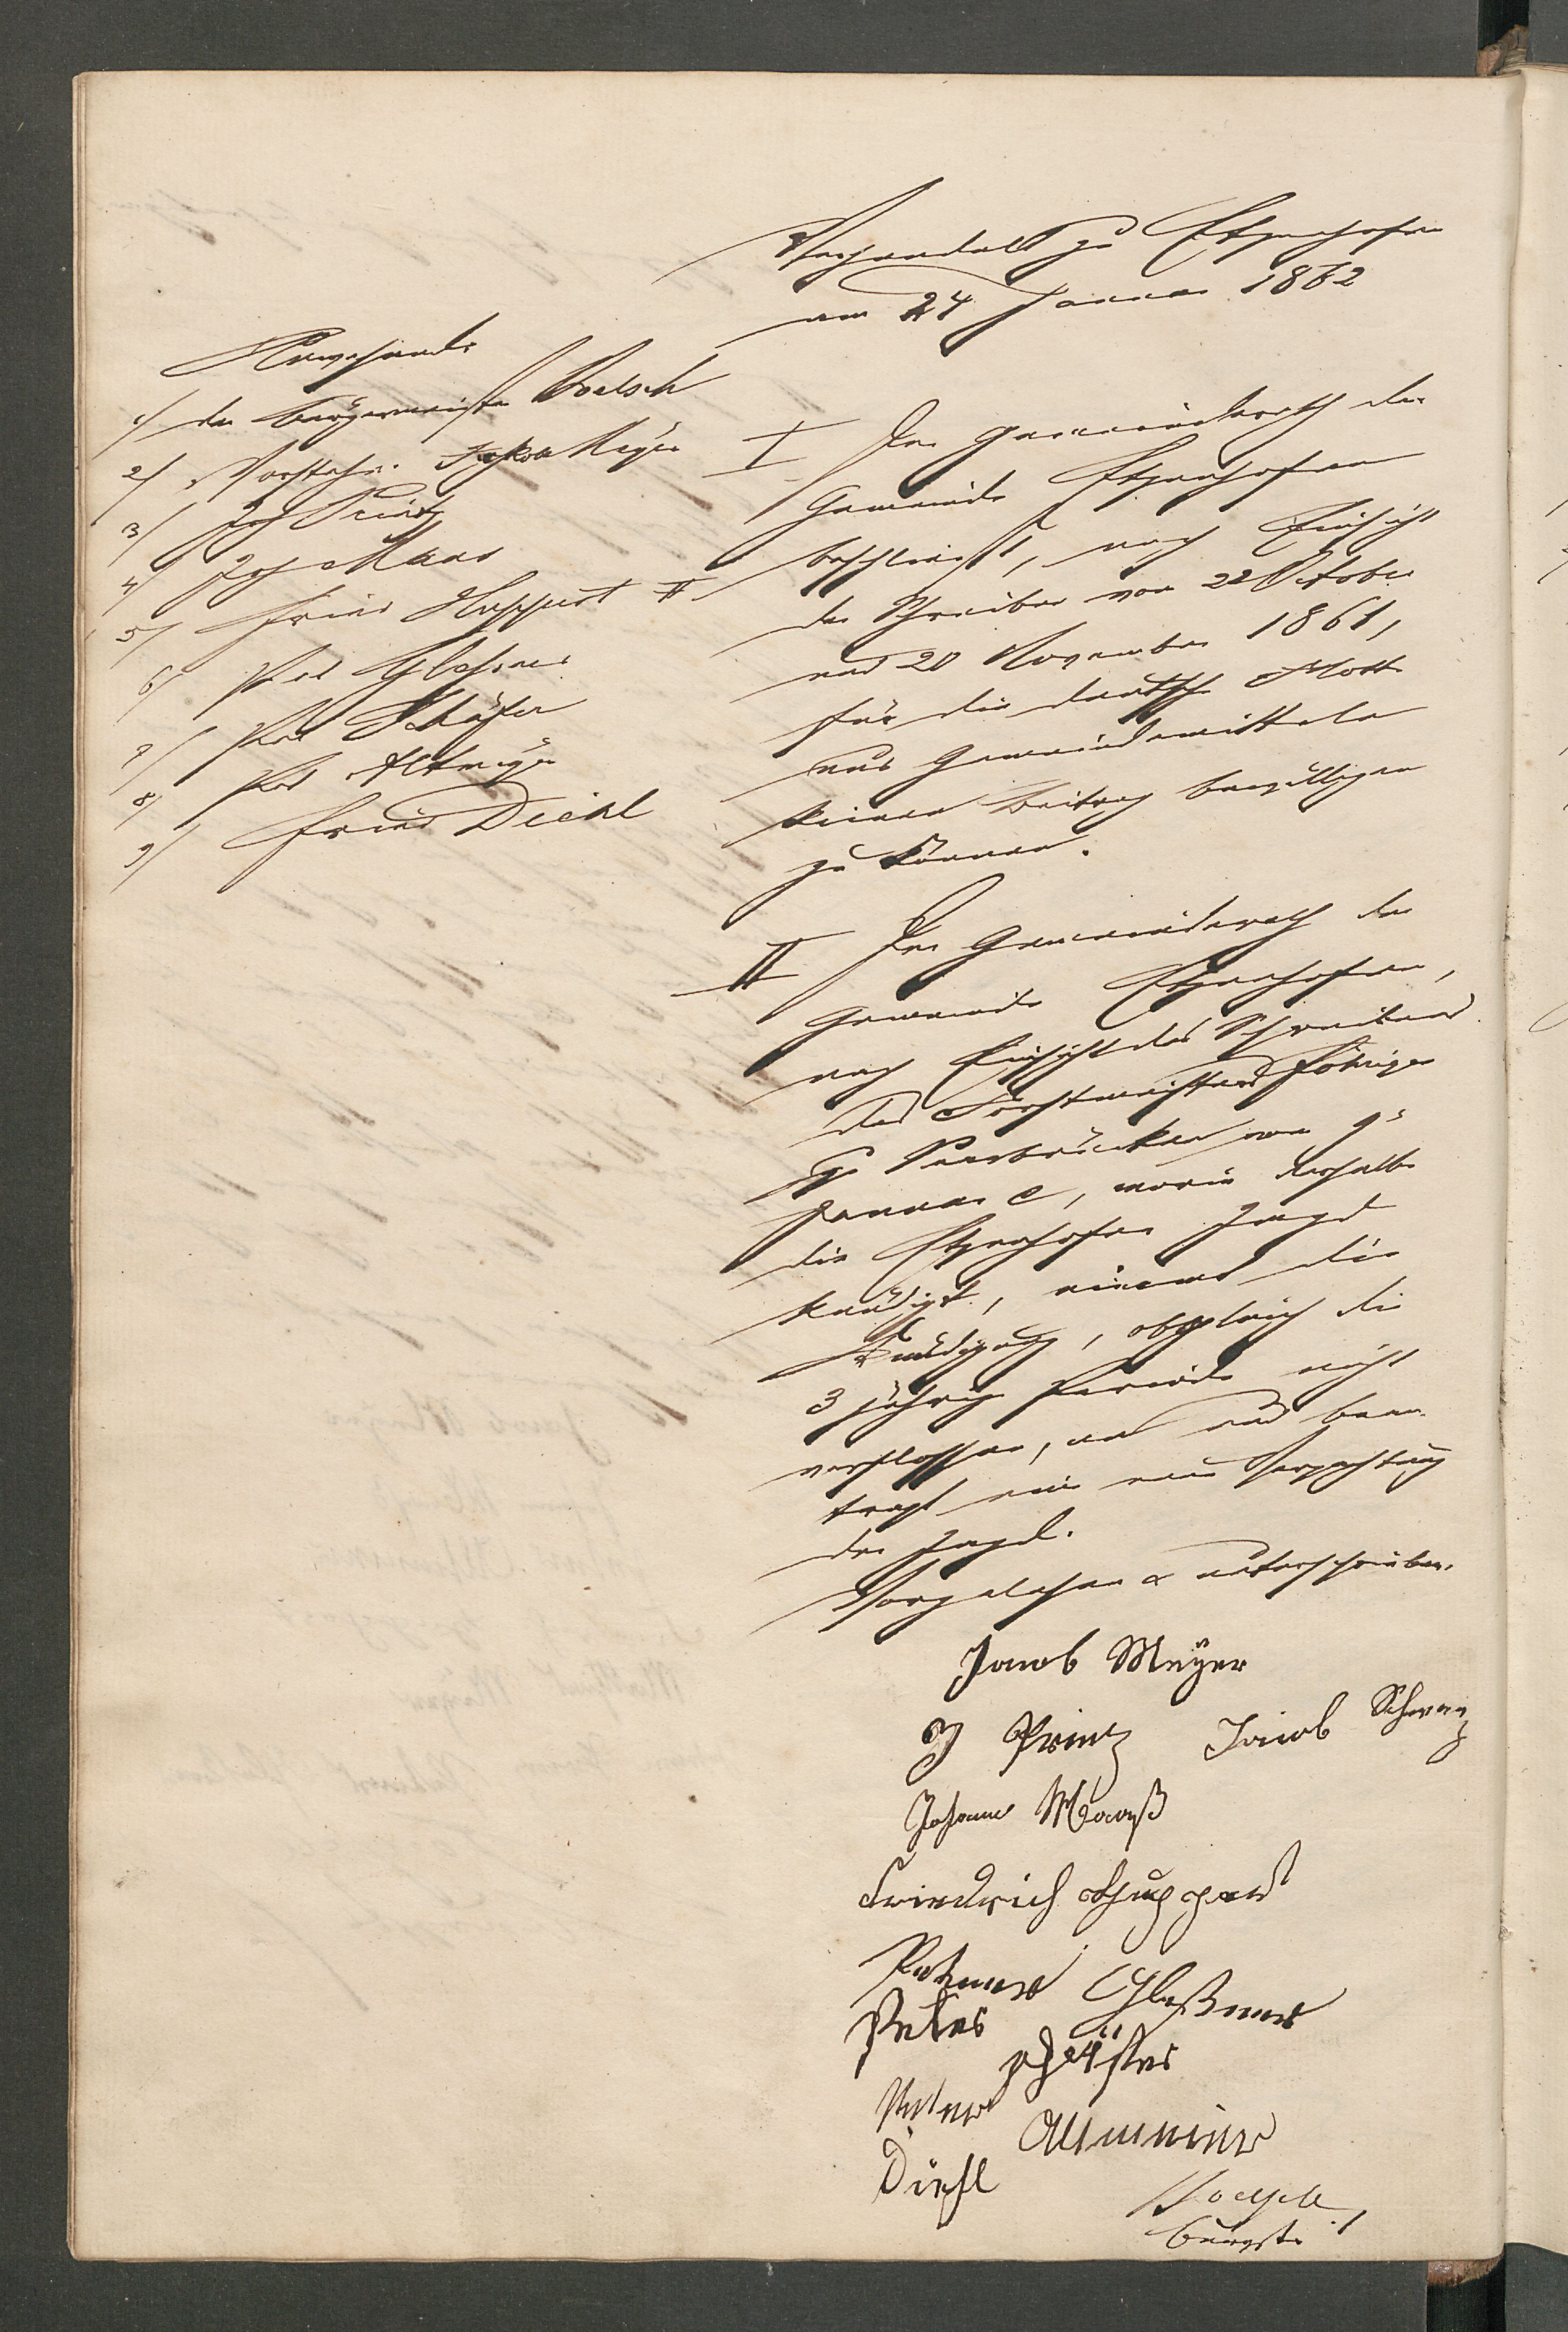 Verhandelt zu Etzenhofen
am 24 Januar 1862
Anwesende
1/ der Bürgermeister Voelsch
2/ Vorsteher Jakob Meyer
3/ Joh Prinz
4/ Joh Maas
5/ Fried Huppert II
6/ Pet Glessner
7/ Pet Schäfer
8/ Pet Altmeyer
9/ Fried Diehl
I Der Gemeinderath der
Gemeinde Etzenhofen
beschliesst, nach Einsicht
der Schreiben vom 22 October
und 20 November 1861,
für die deutsche Flotte
aus Gemeindemitteln
keinen Beitrag bewilligen
zu können.
II Der Gemeinderath der
Gemeinde Etzenhofen,
nach Einsicht des Schreibens
des Forstmeisters Föhriger
zu Saarbrücken vom 9t
Januar c, worin derselbe
die Etzenhofer Jagd
kündigt, nimmt die
Kündigung, obgleich die
3 jährige Periode nicht
verflossen, an und bean-
tragt eine neue Verpachtung
der Jagd.
Vorgelesen & unterschrieben.
Jacob Meÿer
J Prinz Jacob Schwarz
Johann Maaß
Friedrich Huppert
Petner Gleßner
Peter Schäfer
Peter Altmeier
Diehl
Voelsch
Bürgstr